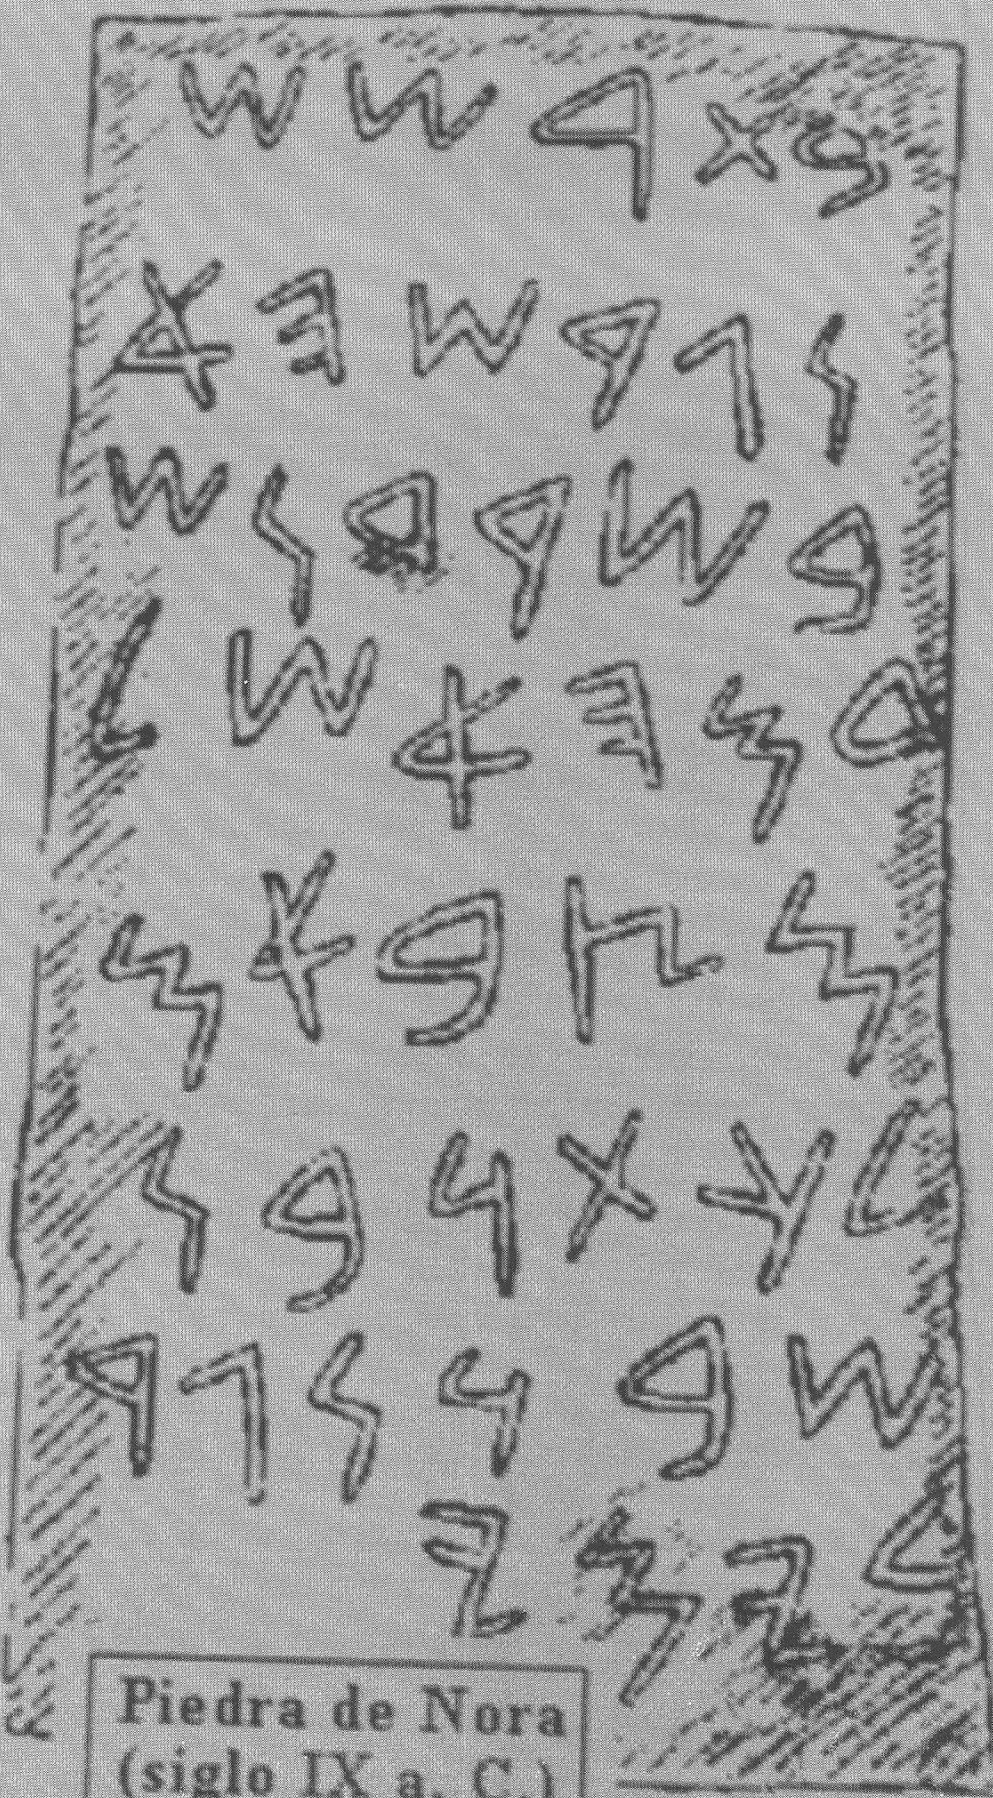 𐤁𐤕𐤓𐤔𐤔
𐤍𐤂𐤓𐤔𐤄𐤀
𐤁𐤔𐤓𐤃𐤍𐤔
𐤋𐤌𐤄𐤀𐤔𐤋
𐤌𐤑𐤁𐤀𐤌
𐤋𐤊𐤕𐤍𐤁𐤍
𐤔𐤁𐤍𐤍𐤂𐤓
𐤋𐤐𐤌𐤉
Piedra de Nora
(siglo IX a. C.)